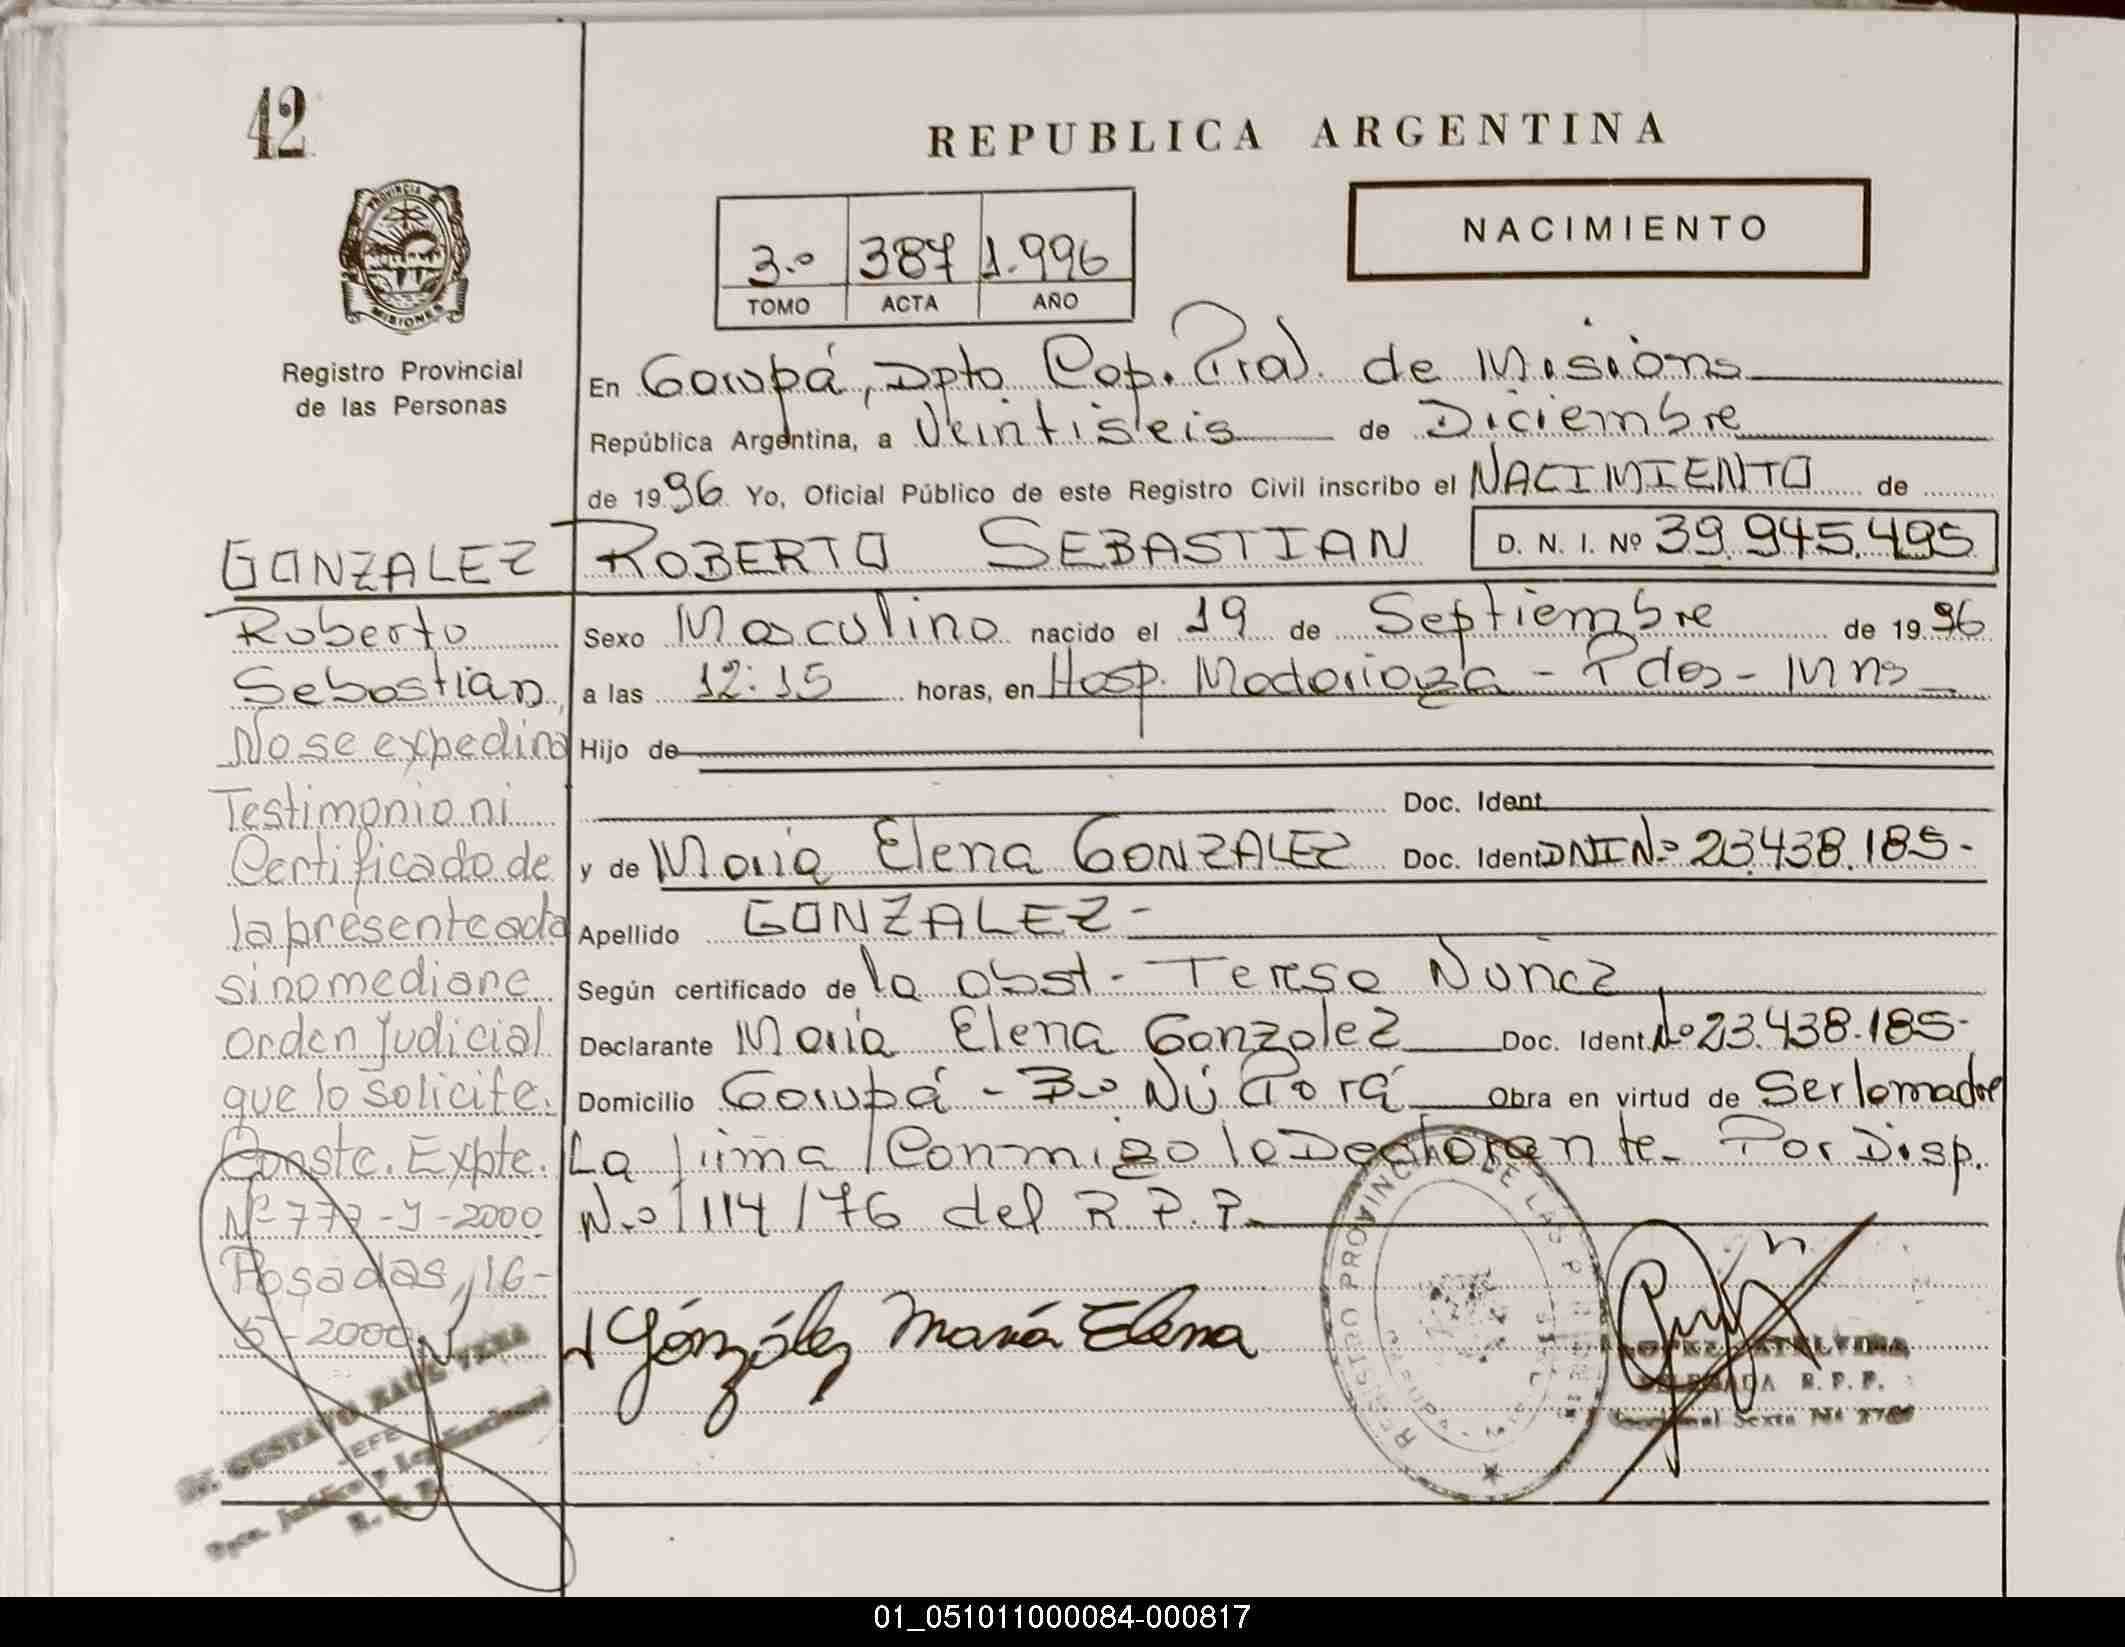 42
REPUBLICA ARGENTINA
PROVINCIA
MISIONES
Registro Provincial
de las Personas
3.º 387 1.996
TOMO ACTA AÑO
NACIMIENTO
En Garupá, Dpto Cap. Pcial. de Misiones
República Argentina, a Veintiseis de Diciembre
de 1996. Yo, Oficial Público de este Registro Civil inscribo el NACIMIENTO de
ROBERTO SEBASTIAN D. N. I. Nº 39.945.495
Sexo Masculino nacido el 19 de Septiembre de 1996
a las 12:15 horas, en Hosp. Madariaga - Pdas - Mnes
Hijo de
Doc. Ident.
y de Maria Elena GONZALEZ Doc. Ident DNI Nº 23.438.185-
Apellido GONZALEZ-
Según certificado de la obst- Teresa Nuñez
Declarante Maria Elena Gonzalez Doc. Ident. Nº 23.438.185-
Domicilio Garupá - Bº Ñu Porá Obra en virtud de Ser la madre
La firma conmigo la Declarante. Por Disp.
N.º 114/76 del R.P.P.
González María Elena
GONZALEZ
Roberto
Sebastian
No se expedirá
Testimonio ni
Certificado de
la presente acta
sino mediane
Orden Judicial
que lo solicite.
Conste. Expte.
Nº 772-Y-2000
Posadas, 16-
5-2000
Dr. GUSTAVO RAUL VERA
JEFE
Dpto. Jurídico y Legalizaciones
R. P. P.
REGISTRO PROVINCIAL DE LAS PERSONAS
LOPEZ ETELVINA
DELEGADA R. P. P.
Seccional Sexta Nº
01_051011000084-000817